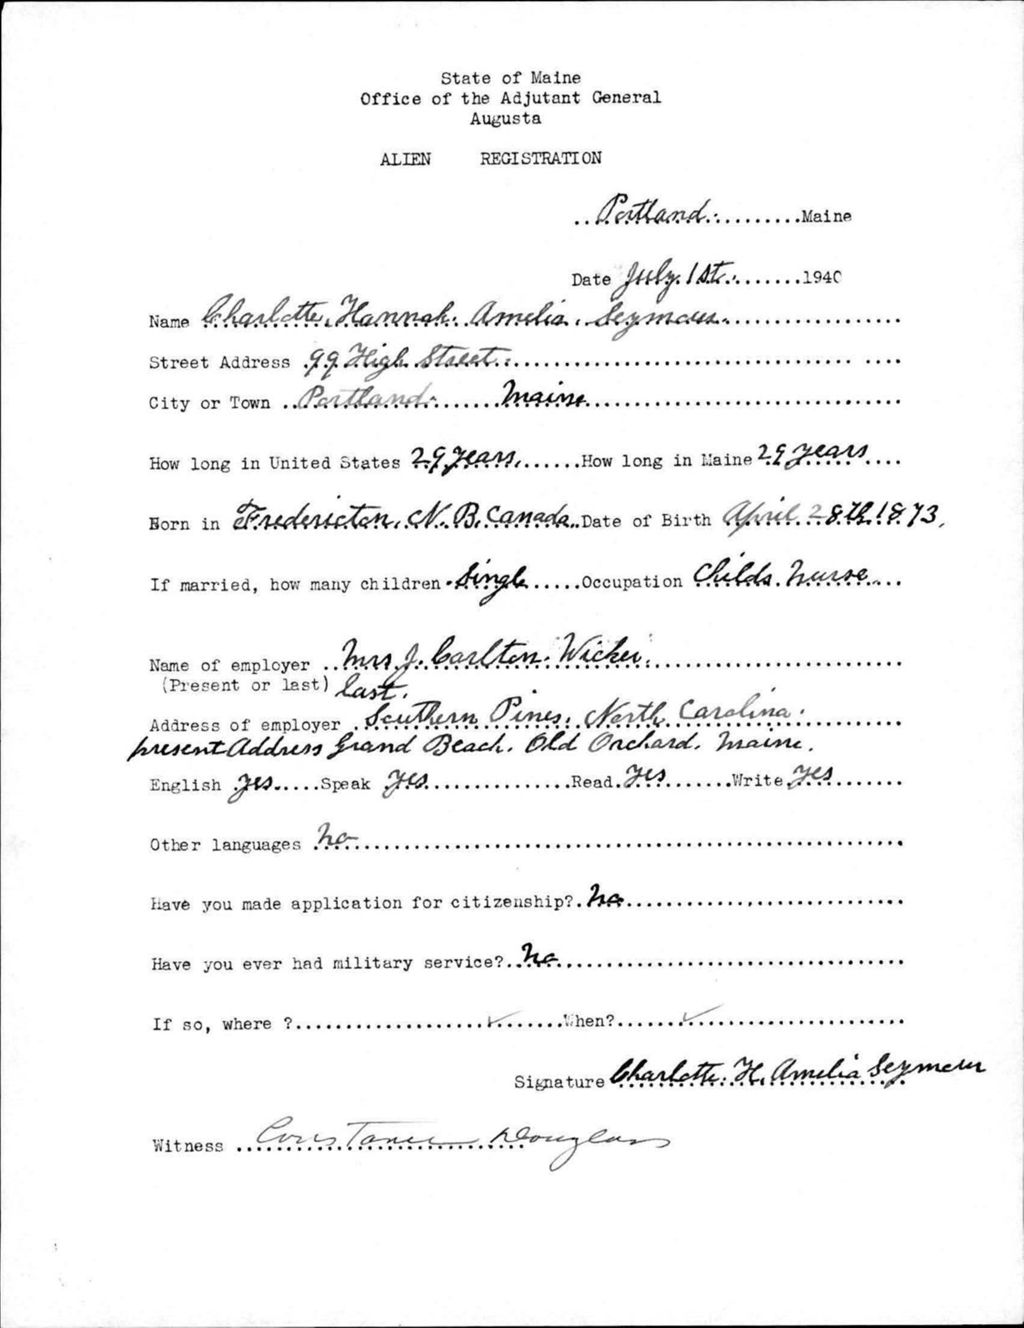 State of Maine
Office of the Adjutant General
Augusta
ALIEN REGISTRATION
Portland. Maine
Date July. 1st. 1940
Name Charlotte, Hannah. Amelia. Seymour.
Street Address 99 High Street.
City or Town Portland. Maine
How long in United States 29 years. How long in Maine 29 years
Born in Fredericton, N. B. Canada. Date of Birth April 28th 1873.
If married, how many children Single Occupation Childs. Nurse
Name of employer Mrs J. Carlton.
(Present or last) last.
Address of employer Southern Pines, North Carolina.
present Address Grand Beach. Old Orchard. Maine.
English yes Speak yes Read. yes Write. yes
Other languages no
Have you made application for citizenship?. no
Have you ever had military service?.. no
If so, where ? When?
Signature Charlotte. H. Amelia Seymour
Witness Constance Douglass